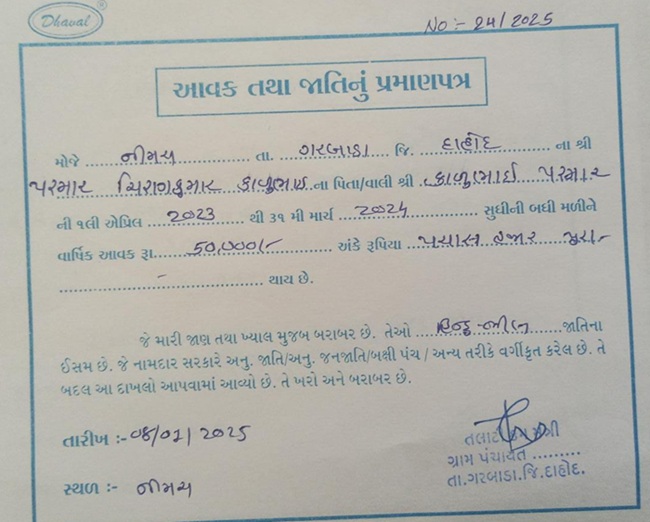 Dhaval ®
No :- 24/2025
આવક તથા જાતિનું પ્રમાણપત્ર
મોજે નીમચ તા. ગરબાડા જિ. દાહોદ ના શ્રી
પરમાર ચિરાગકુમાર કાળુભાઈ ના પિતા/વાલી શ્રી કાળુભાઈ પરમાર
ની ૧લી એપ્રિલ 2023 થી ૩૧ મી માર્ચ 2024 સુધીની બધી મળીને
વાર્ષિક આવક રૂા. 50,000/- અંકે રૂપિયા પચાસ હજાર પુરા.-
થાય છે.
જે મારી જાણ તથા ખ્યાલ મુજબ બરાબર છે. તેઓ હિન્દુ-ભીલ જાતિના
ઈસમ છે. જે નામદાર સરકારે અનુ. જાતિ/અનુ. જનજાતિ/બક્ષી પંચ / અન્ય તરીકે વર્ગીકૃત કરેલ છે. તે
બદલ આ દાખલો આપવામાં આવ્યો છે. તે ખરો અને બરાબર છે.
તારીખ :- 08/01/2025
તલાટી કમ મંત્રી
ગ્રામ પંચાયત .........
તા.ગરબાડા.જિ.દાહોદ.
સ્થળ :- નીમચ